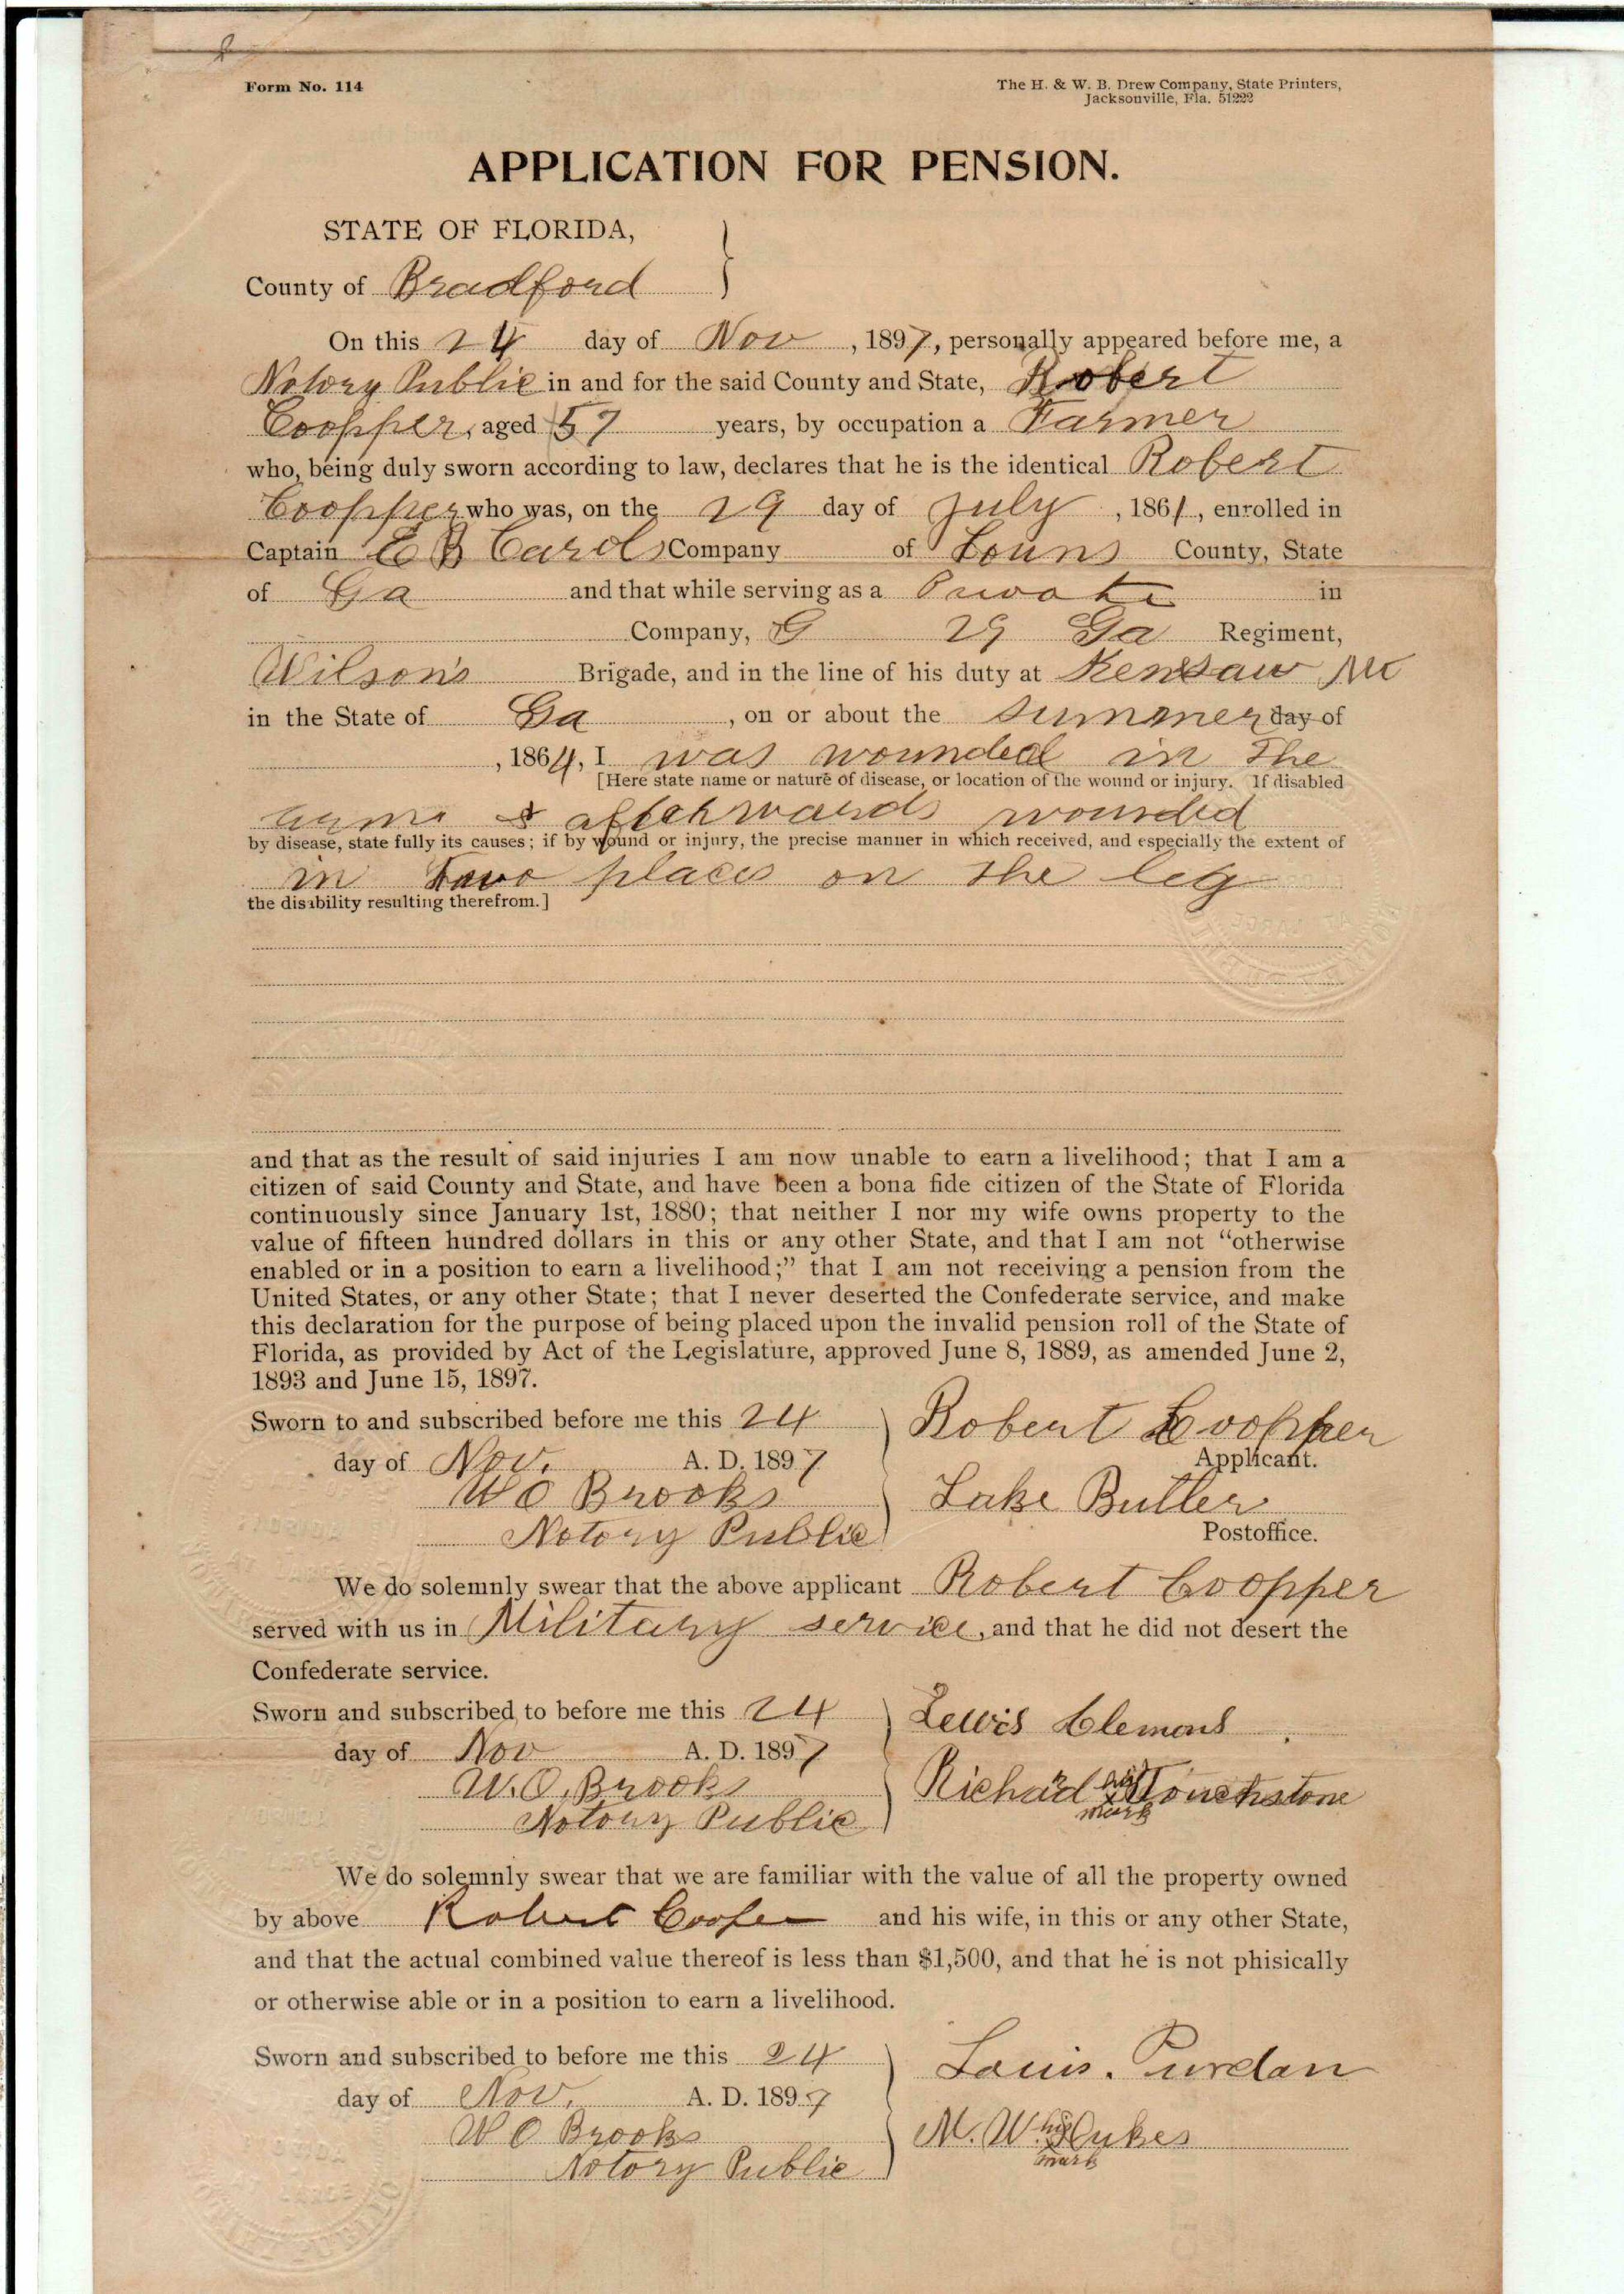 Form No. 114
The H. & W. B. Drew Company, State Printers,
Jacksonville, Fla. 51222
APPLICATION FOR PENSION.
STATE OF FLORIDA,
County of Bradford
On this 24 day of Nov , 1897, personally appeared before me, a
Notory Public in and for the said County and State, Robert
Coopper, aged 57 years, by occupation a Farmer
who, being duly sworn according to law, declares that he is the identical Robert
Coopper who was, on the 29 day of July , 1861, enrolled in
Captain E B Carols Company of Louns County, State
of Ga and that while serving as a Private in
Company, G 29 Ga Regiment,
Wilson's Brigade, and in the line of his duty at Kensaw Mt
in the State of Ga , on or about the summer day of
, 1864, I was wounded in the
[Here state name or nature of disease, or location of the wound or injury. If disabled
arm & afterwards wounded
by disease, state fully its causes; if by wound or injury, the precise manner in which received, and especially the extent of
in two places on the leg
the disability resulting therefrom.]
and that as the result of said injuries I am now unable to earn a livelihood; that I am a
citizen of said County and State, and have been a bona fide citizen of the State of Florida
continuously since January 1st, 1880; that neither I nor my wife owns property to the
value of fifteen hundred dollars in this or any other State, and that I am not "otherwise
enabled or in a position to earn a livelihood;" that I am not receiving a pension from the
United States, or any other State; that I never deserted the Confederate service, and make
this declaration for the purpose of being placed upon the invalid pension roll of the State of
Florida, as provided by Act of the Legislature, approved June 8, 1889, as amended June 2,
1893 and June 15, 1897.
Sworn to and subscribed before me this 24 Robert Coopper
day of Nov. A. D. 1897 Applicant.
W O Brooks Lake Butler
Notory Public Postoffice.
We do solemnly swear that the above applicant Robert Coopper
served with us in Military service, and that he did not desert the
Confederate service.
Sworn and subscribed to before me this 24 Lewis Clemons
day of Nov A. D. 1897
W. O. Brooks Richard his x mark Touchstone
Notory Public
We do solemnly swear that we are familiar with the value of all the property owned
by above Robert Cooper and his wife, in this or any other State,
and that the actual combined value thereof is less than $1,500, and that he is not phisically
or otherwise able or in a position to earn a livelihood.
Sworn and subscribed to before me this 24 Louis. Purdan
day of Nov. A. D. 1897
W O Brooks M. W. his x mark Dukes
Notory Public